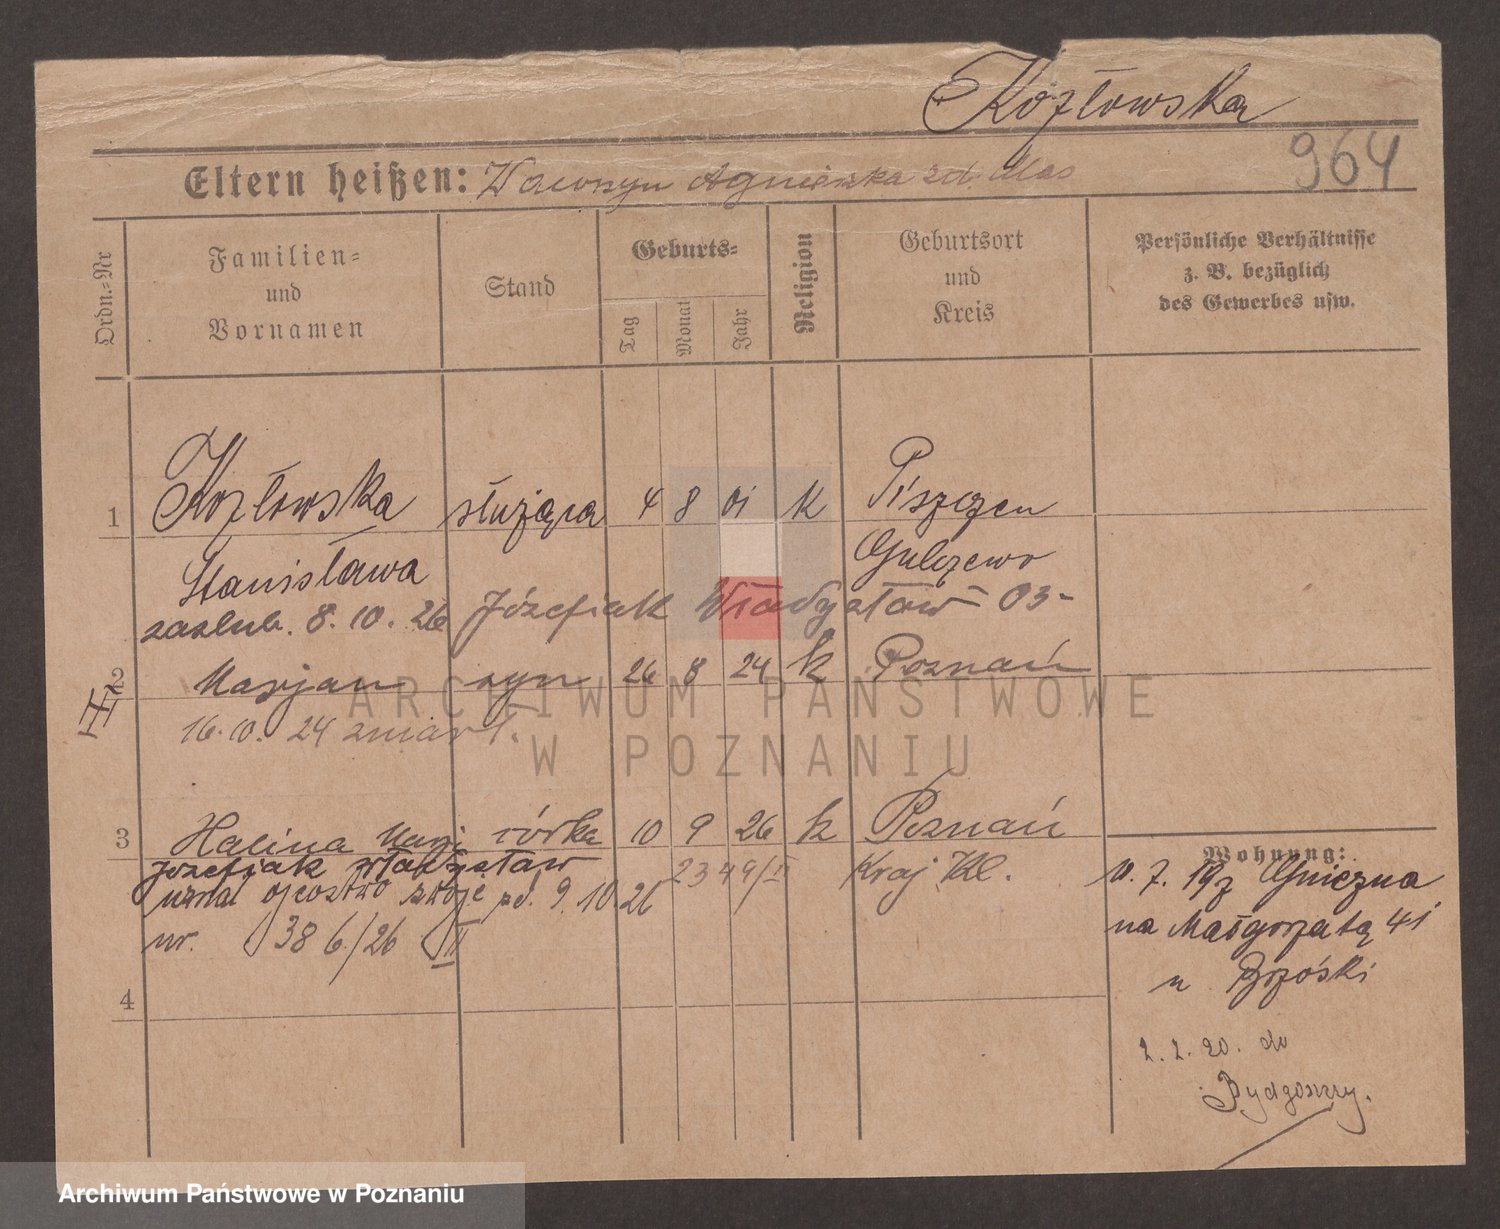 Kozłowska
964
Eltern heißen: Wawrzyn Agnieszka zd. Mas
Ordn.-Nr
Familien- und Vornamen
Stand
Geburts-
Tag
Monat
Jahr
Religion
Geburtsort und Kreis
Persönliche Verhältnisse
z. B. bezüglich
des Gewerbes usw.
1 Kozłowska służąca 4 8 01 k Piszczen
Stanisława Gulczewo
zaślub. 8. 10. 26 Józefiak Władysław 03-
2 Marjan syn 26 8 24 k Poznań
16.10. 24 zmarł.
3 Halina Marj córka 10 9 26 k Poznań
Józefiak Władysław 2349/II Kraj
uznał ojcostwo swoje pd. 9.10.26
nr. 386/26 II
4
Wohnung:
Gniezna
na Małgorzatą 41
u Brzóski
2. 2. 20. do
Bydgoszczy.
ARCHIWUM PAŃSTWOWE
W POZNANIU
Archiwum Państwowe w Poznaniu